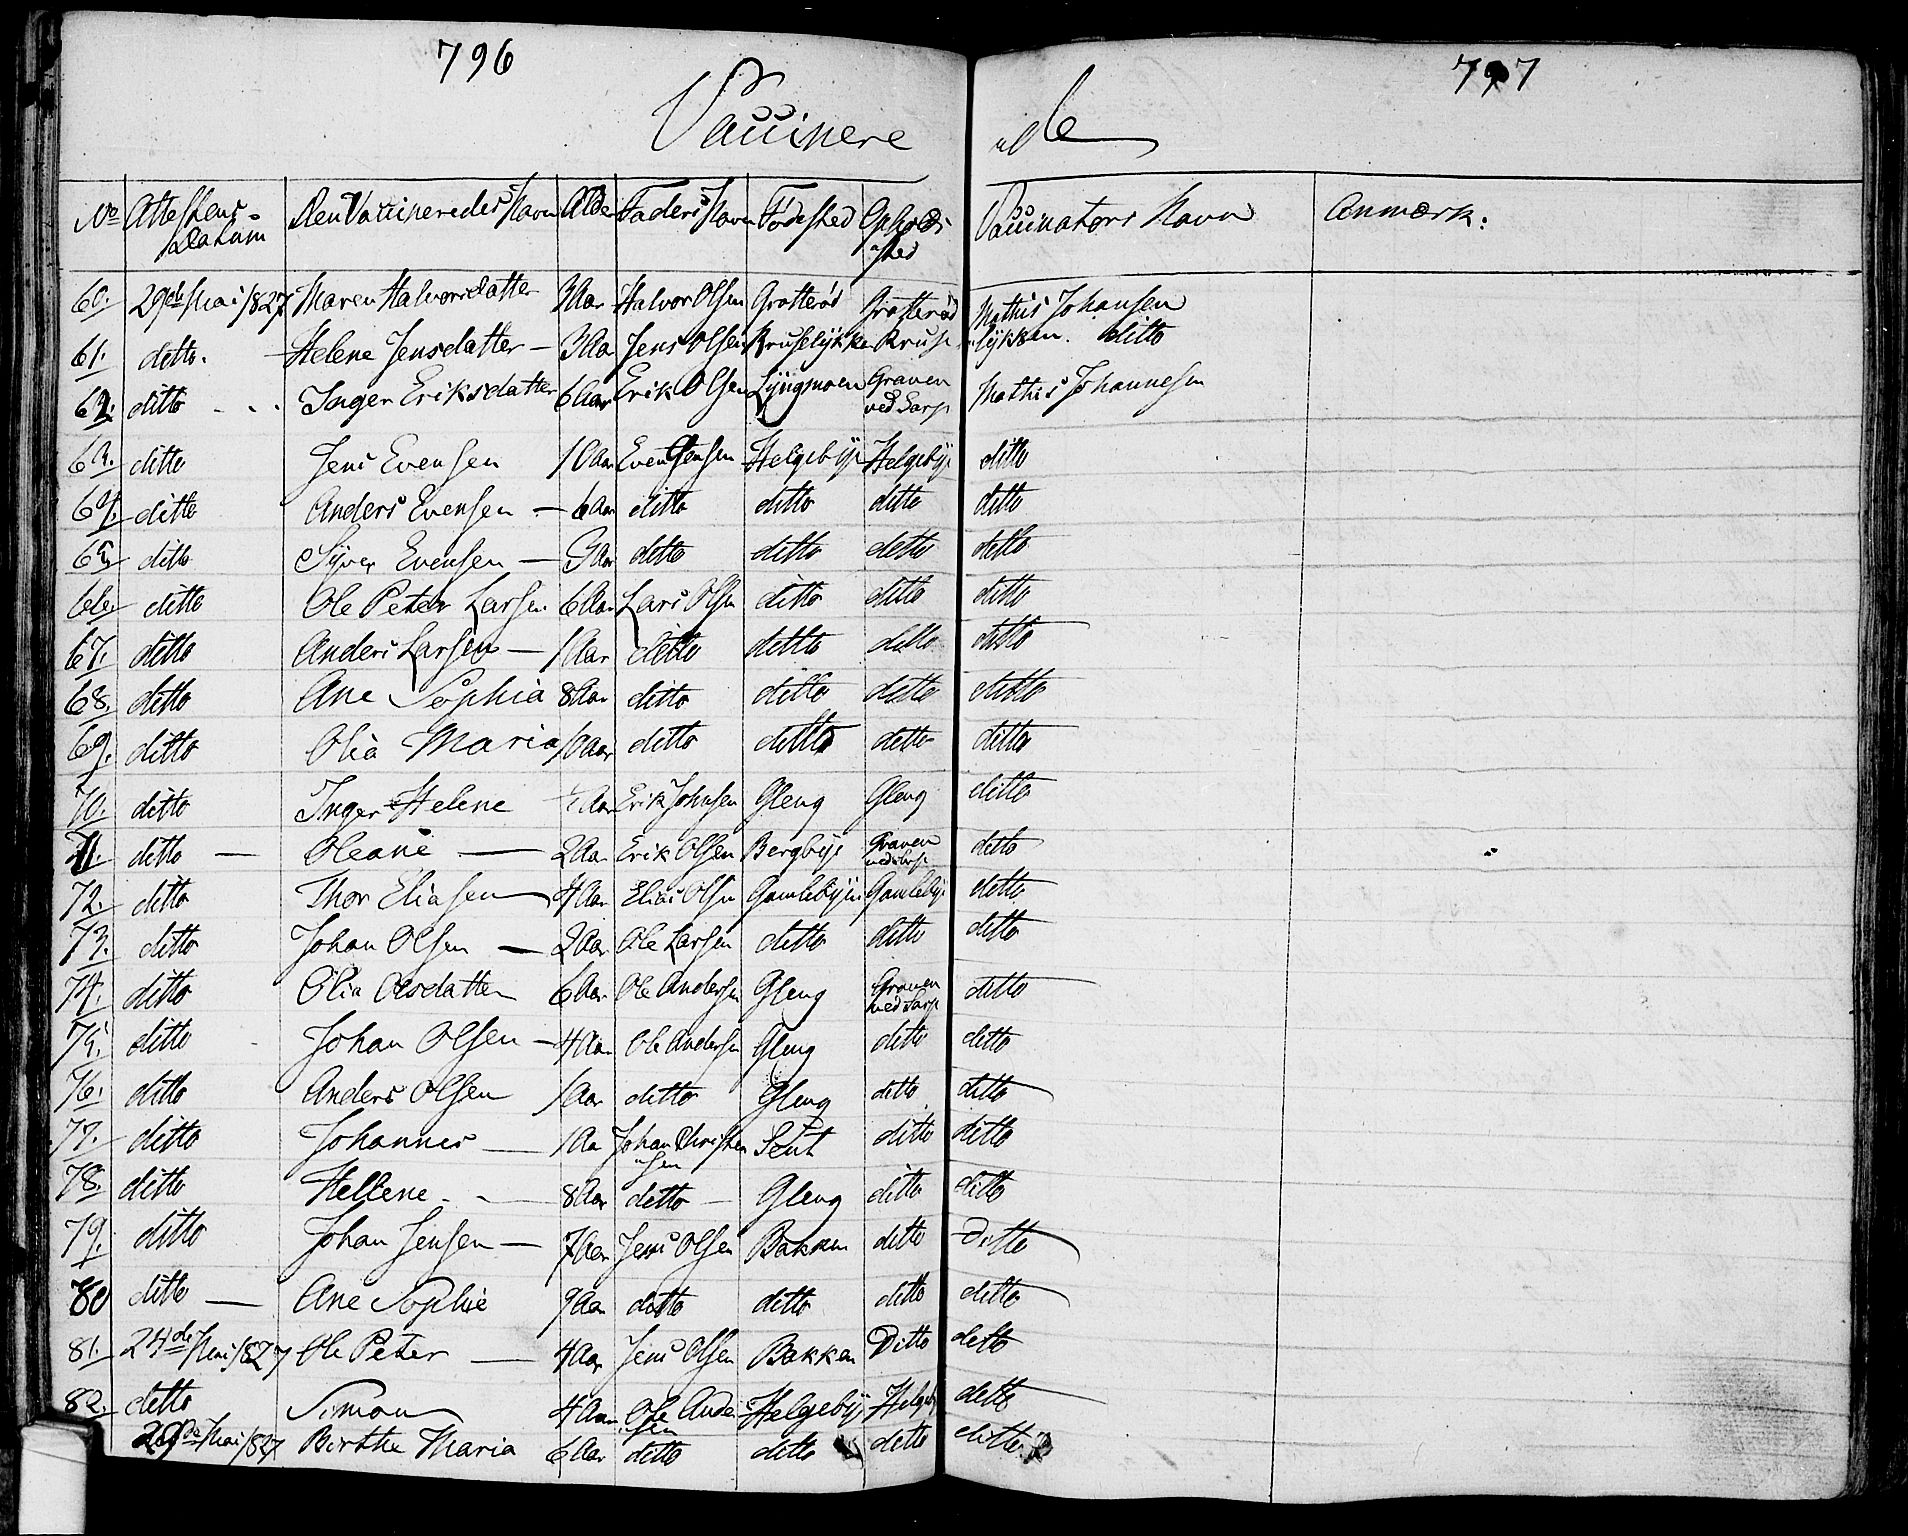 796
797
Vaccinere
de
No Attestens- Den Vaccineredes Navn Alder Faders Navn Fødested Opholds Vaccinators Navn Anmærk:
Datum sted
60. 29de Mai 1827 Maren Halvorsdatter 3 Aar Halvor Olsen Grotterød Grotterød Mathis Johansen
61. ditto. Helene Jensdatter — 3 Aar Jens Olsen Kruselykke Kruse lykken. ditto
62. ditto Inger Eriksdatter 6 Aar Erik Olsen Lyngmoen Graven Mathis Johannesen
ved Sarp
63. ditto Jens Evensen 10 Aar Even Jensen Helgebye Helgebye ditto
64. ditto Anders Evensen — 6 Aar ditto ditto ditto ditto
65 ditto Syver Evensen — 3 Aar ditto ditto ditto ditto
66 ditto Ole Peter Larsen 6 Aar Lars Olsen ditto ditto ditto
67. ditto Anders Larsen — 1 Aar ditto ditto ditto ditto
68. ditto Ane Sophia 8 Aar ditto ditto ditto ditto
69. ditto Olia Maria 10 Aar ditto ditto ditto ditto
70. ditto Inger Helene Aar Erik Johnsen Gleng Gleng ditto
71. ditto — Oleane — 2 Aar Erik Olsen Bergbye Graven ditto
ved Sarp
72. ditto Thor Eliasen 4 Aar Elias Olsen Gamlebyen Gamlebye ditto
73. ditto Johan Olsen — 2 Aar Ole Larsen ditto ditto ditto
74. ditto Olia Olsdatter 6 Aar Ole Andersen Gleng Graven ditto
ved Sarp
75. ditto Johan Olsen — 4 Aar Ole Andersen Gleng ditto ditto
76. ditto Anders Olsen 1 Aar ditto Gleng ditto ditto
77. ditto Johannes — 1 Aa Johan Christen ditto ditto
sen
78. ditto Hellene — 8 Aar ditto — Gleng ditto ditto
79. ditto Johan Jensen — 7 Aar Jens Olsen Bakken ditto Ditto
80 ditto — Ane Sophie 9 Aar ditto ditto ditto ditto
81. 24de Mai 1827 Ole Peter — 4 Aar Jens Olsen Bakken Ditto ditto
82. ditto Simon 4 Aar Ole Ander Helgebye Helgeb ditto
sen
29de Mai 1827 Birthe Maria 6 Aar ditto ditto ditto ditto